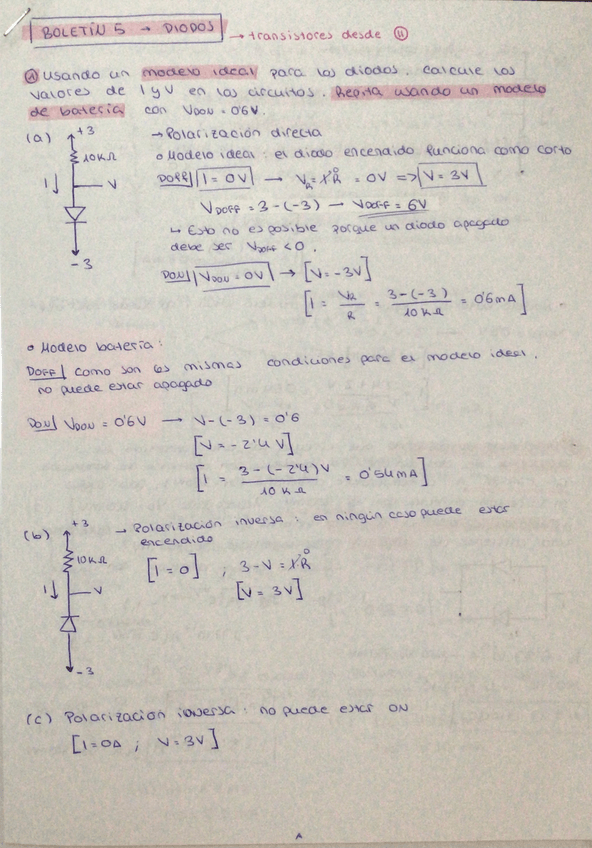 BOLETÍN 5 → DIODOS → transistores desde 11
1 Usando un modelo ideal para los diodos, calcule los
valores de I y V en los circuitos. Repita usando un modelo
de batería con VDON = 0'6V.
(a) +3 → Polarización directa
10KΩ
I↓ V
-3
○ Modelo ideal: el diodo encendido funciona como corto
DOFF I = 0V → VR = I·R⁰ = 0V => V = 3V
VDOFF = 3-(-3) → VDOFF = 6V
↳ Esto no es posible porque un diodo apagado
debe ser VDOFF < 0.
DON VDON = 0V → [V = -3V]
[I = VR/R = 3-(-3)/10KΩ = 0'6mA]
○ Modelo batería:
DOFF Como son las mismas condiciones para el modelo ideal,
no puede estar apagado
DON VDON = 0'6V → V-(-3) = 0'6
[V = -2'4 V]
[I = 3-(-2'4)V/10KΩ = 0'54mA]
(b) +3 → Polarización inversa: en ningún caso puede estar
encendido
10KΩ
I↓ V
-3
[I = 0] ; 3-V = I·R⁰
[V = 3V]
(c) Polarización inversa: no puede estar ON
[I = 0A ; V = 3V]